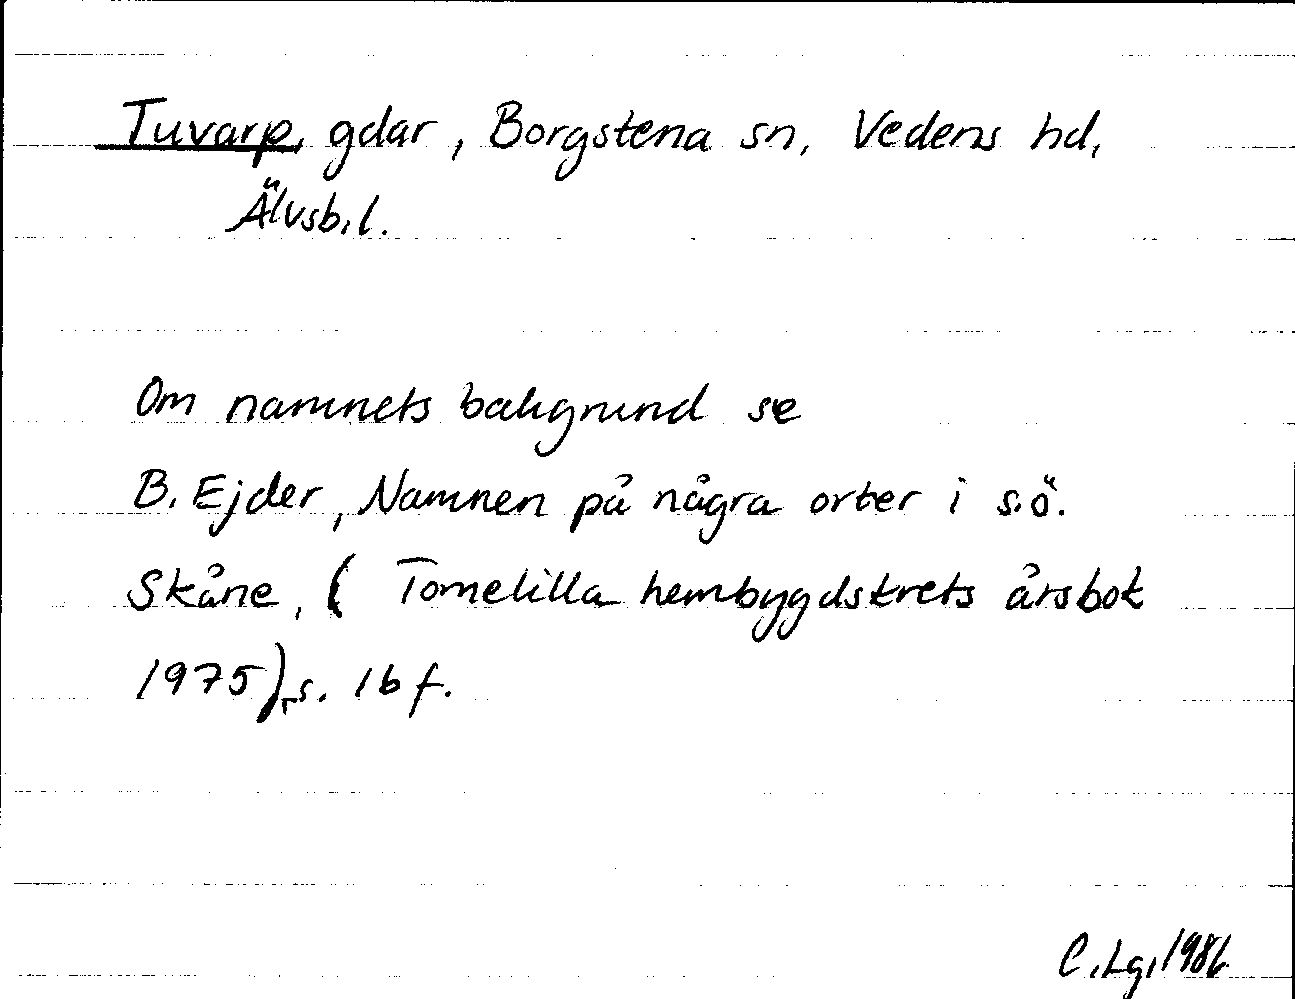 Tuvarp, gdar, Borgstena sn, Vedens hd,
Älvsb. l.
Om namnets bakgrund se
B. Ejder, Namnen på några orter i s.ö.
Skåne, ( Tomelilla hembygdskrets årsbok
1975), s. 16 f.
C. Lg, 1986